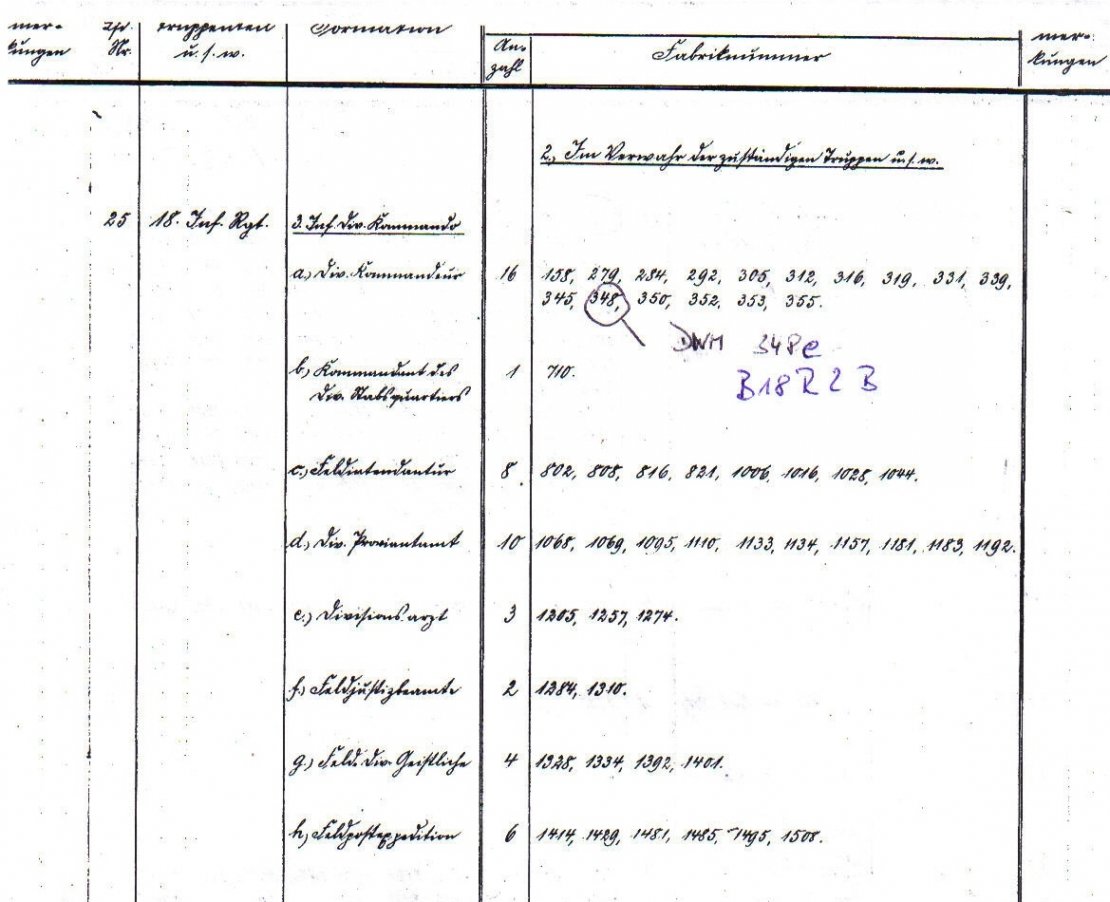 mer- Lfd. Truppenteil Formation mer-
kungen Nr. u. s. w. An- Fabriknummer kungen
zahl
2., Im Verwahr der zuständigen Truppen u. s. w.
25 18. Inf. Rgt. 3. Inf. Div. Kommando
a.) Div. Kommandeur 16 158, 279, 284, 292, 305, 312, 316, 319, 331, 339,
345, 348, 350, 352, 353, 355.
DWM 348e
b.) Kommandant des 1 710.
B18R2B
Div. Stabsquartiers
c.) Feldintendantur 8 802, 808, 816, 821, 1006, 1016, 1028, 1044.
d.) Div. Proviantamt 10 1068, 1069, 1095, 1110, 1133, 1134, 1157, 1181, 1183, 1192.
e.) Divisionsarzt 3 1205, 1257, 1274.
f.) Feldjustizbeamte 2 1284, 1310.
g.) Feld. Div. Geistliche 4 1328, 1334, 1392, 1401.
h.) Feldpostexpedition 6 1414, 1429, 1481, 1485, 1495, 1508.